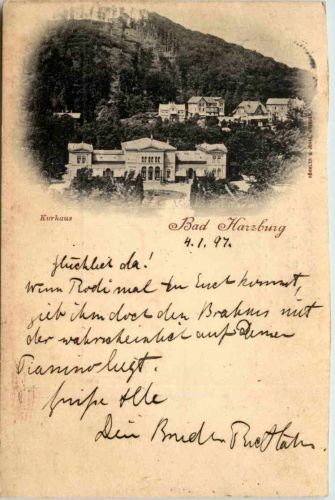 Kurhaus
Bad Harzburg
4.1.97.
Glücklich da!
Wenn Rodi mal zu Euch kommt,
gieb ihm doch den Brahms mit
der wahrscheinlich auf Deinem
Pianino liegt.
Grüße Alle
Dein Bruder